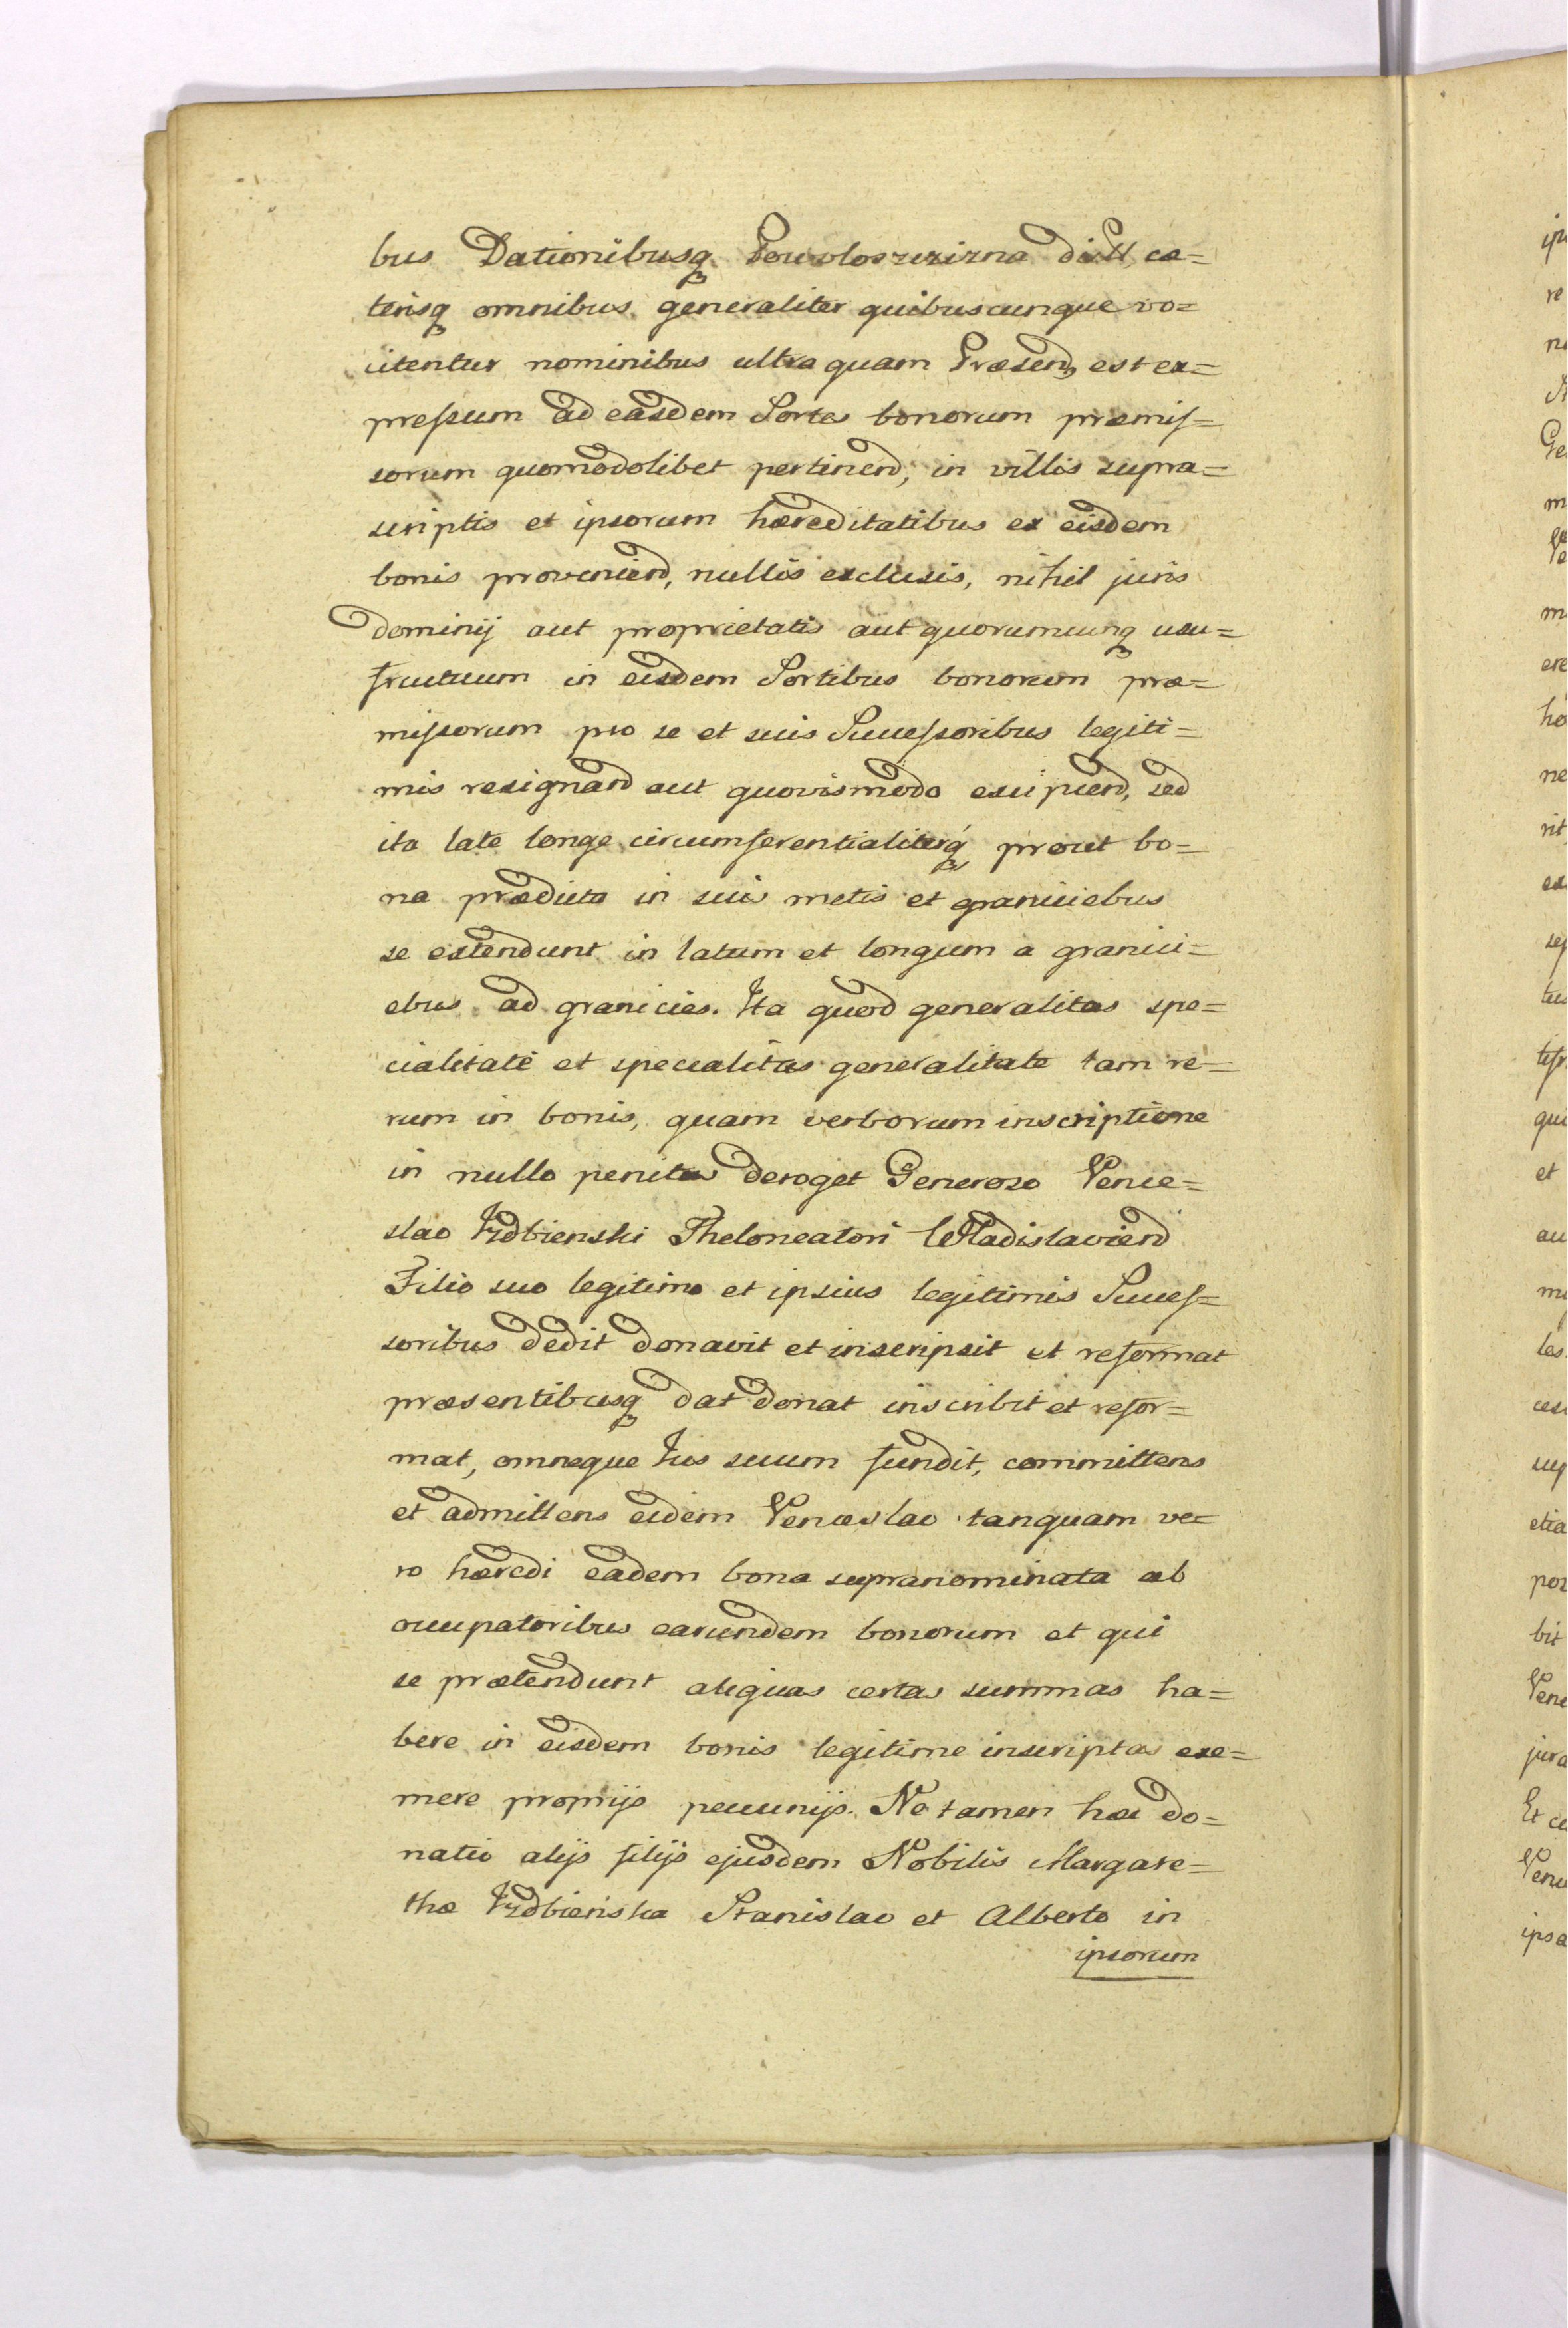 bus Dationibusq Powoloszczizna dict, cæ=
terisq omnibus generaliter quibuscunque vo=
citentur nominibus ultra quam Præsend est ex=
pressum ad easdem Sortes bonorum præmis=
sorum quomodolibet pertinend, in villis supra=
scriptis et ipsorum hæreditatibus ex eisdem
bonis proveniend, nullis exclusis, nihil juris
dominij aut proprietatis aut quorumcunq usu=
fructuum in eisdem Sortibus bonorum præ=
missorum pro se et suis Successoribus legiti=
mis resignand aut quovismodo excipiend, sed
ita late longe circumferentialiterq prout bo=
na prædicta in suis metis et graniciebus
se extendunt in latum et longum a granici=
ebus ad granicies. Ita quod generalitas spe=
cialitate et specialitas generalitate tam re=
rum in bonis, quam verborum inscriptione
in nullo penitus deroget Generoso Vence=
slao Izdbienski Theloneatori Wladislaviend
Filio suo legitimo et ipsius legitimis Succes=
soribus dedit donavit et inscripsit et reformat
præsentibusq dat donat inscribit et refor=
mat, omneque Jus suum fundit, committens
et admittens eidem Venceslao tanquam ve=
ro hæredi eadem bona supranominata ab
occupatoribus earundem bonorum et qui
se prætendunt aliquas certas summas ha=
bere in eisdem bonis legitime inscriptas exe=
mere proprijs pecunijs. Ne tamen hæc do=
natio alijs filijs ejusdem Nobilis Margare=
thæ Izdbienska Stanislao et Alberto in
ipsorum

ip
re
n
Ge
m
Ve
m
ere
ho
ne
rit
ex
sep
tus
tess
qui
et
au
mi
les
ces
sup
etia
pos
bit
Venc
jura
Et ce
Venc
ipsa